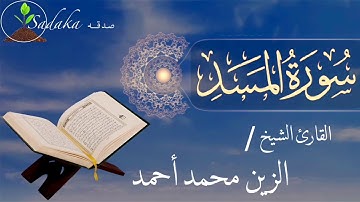 Sadaka صدقه
سُورَةُ المَسَدِ
القارئ الشيخ /
الزين محمد أحمد